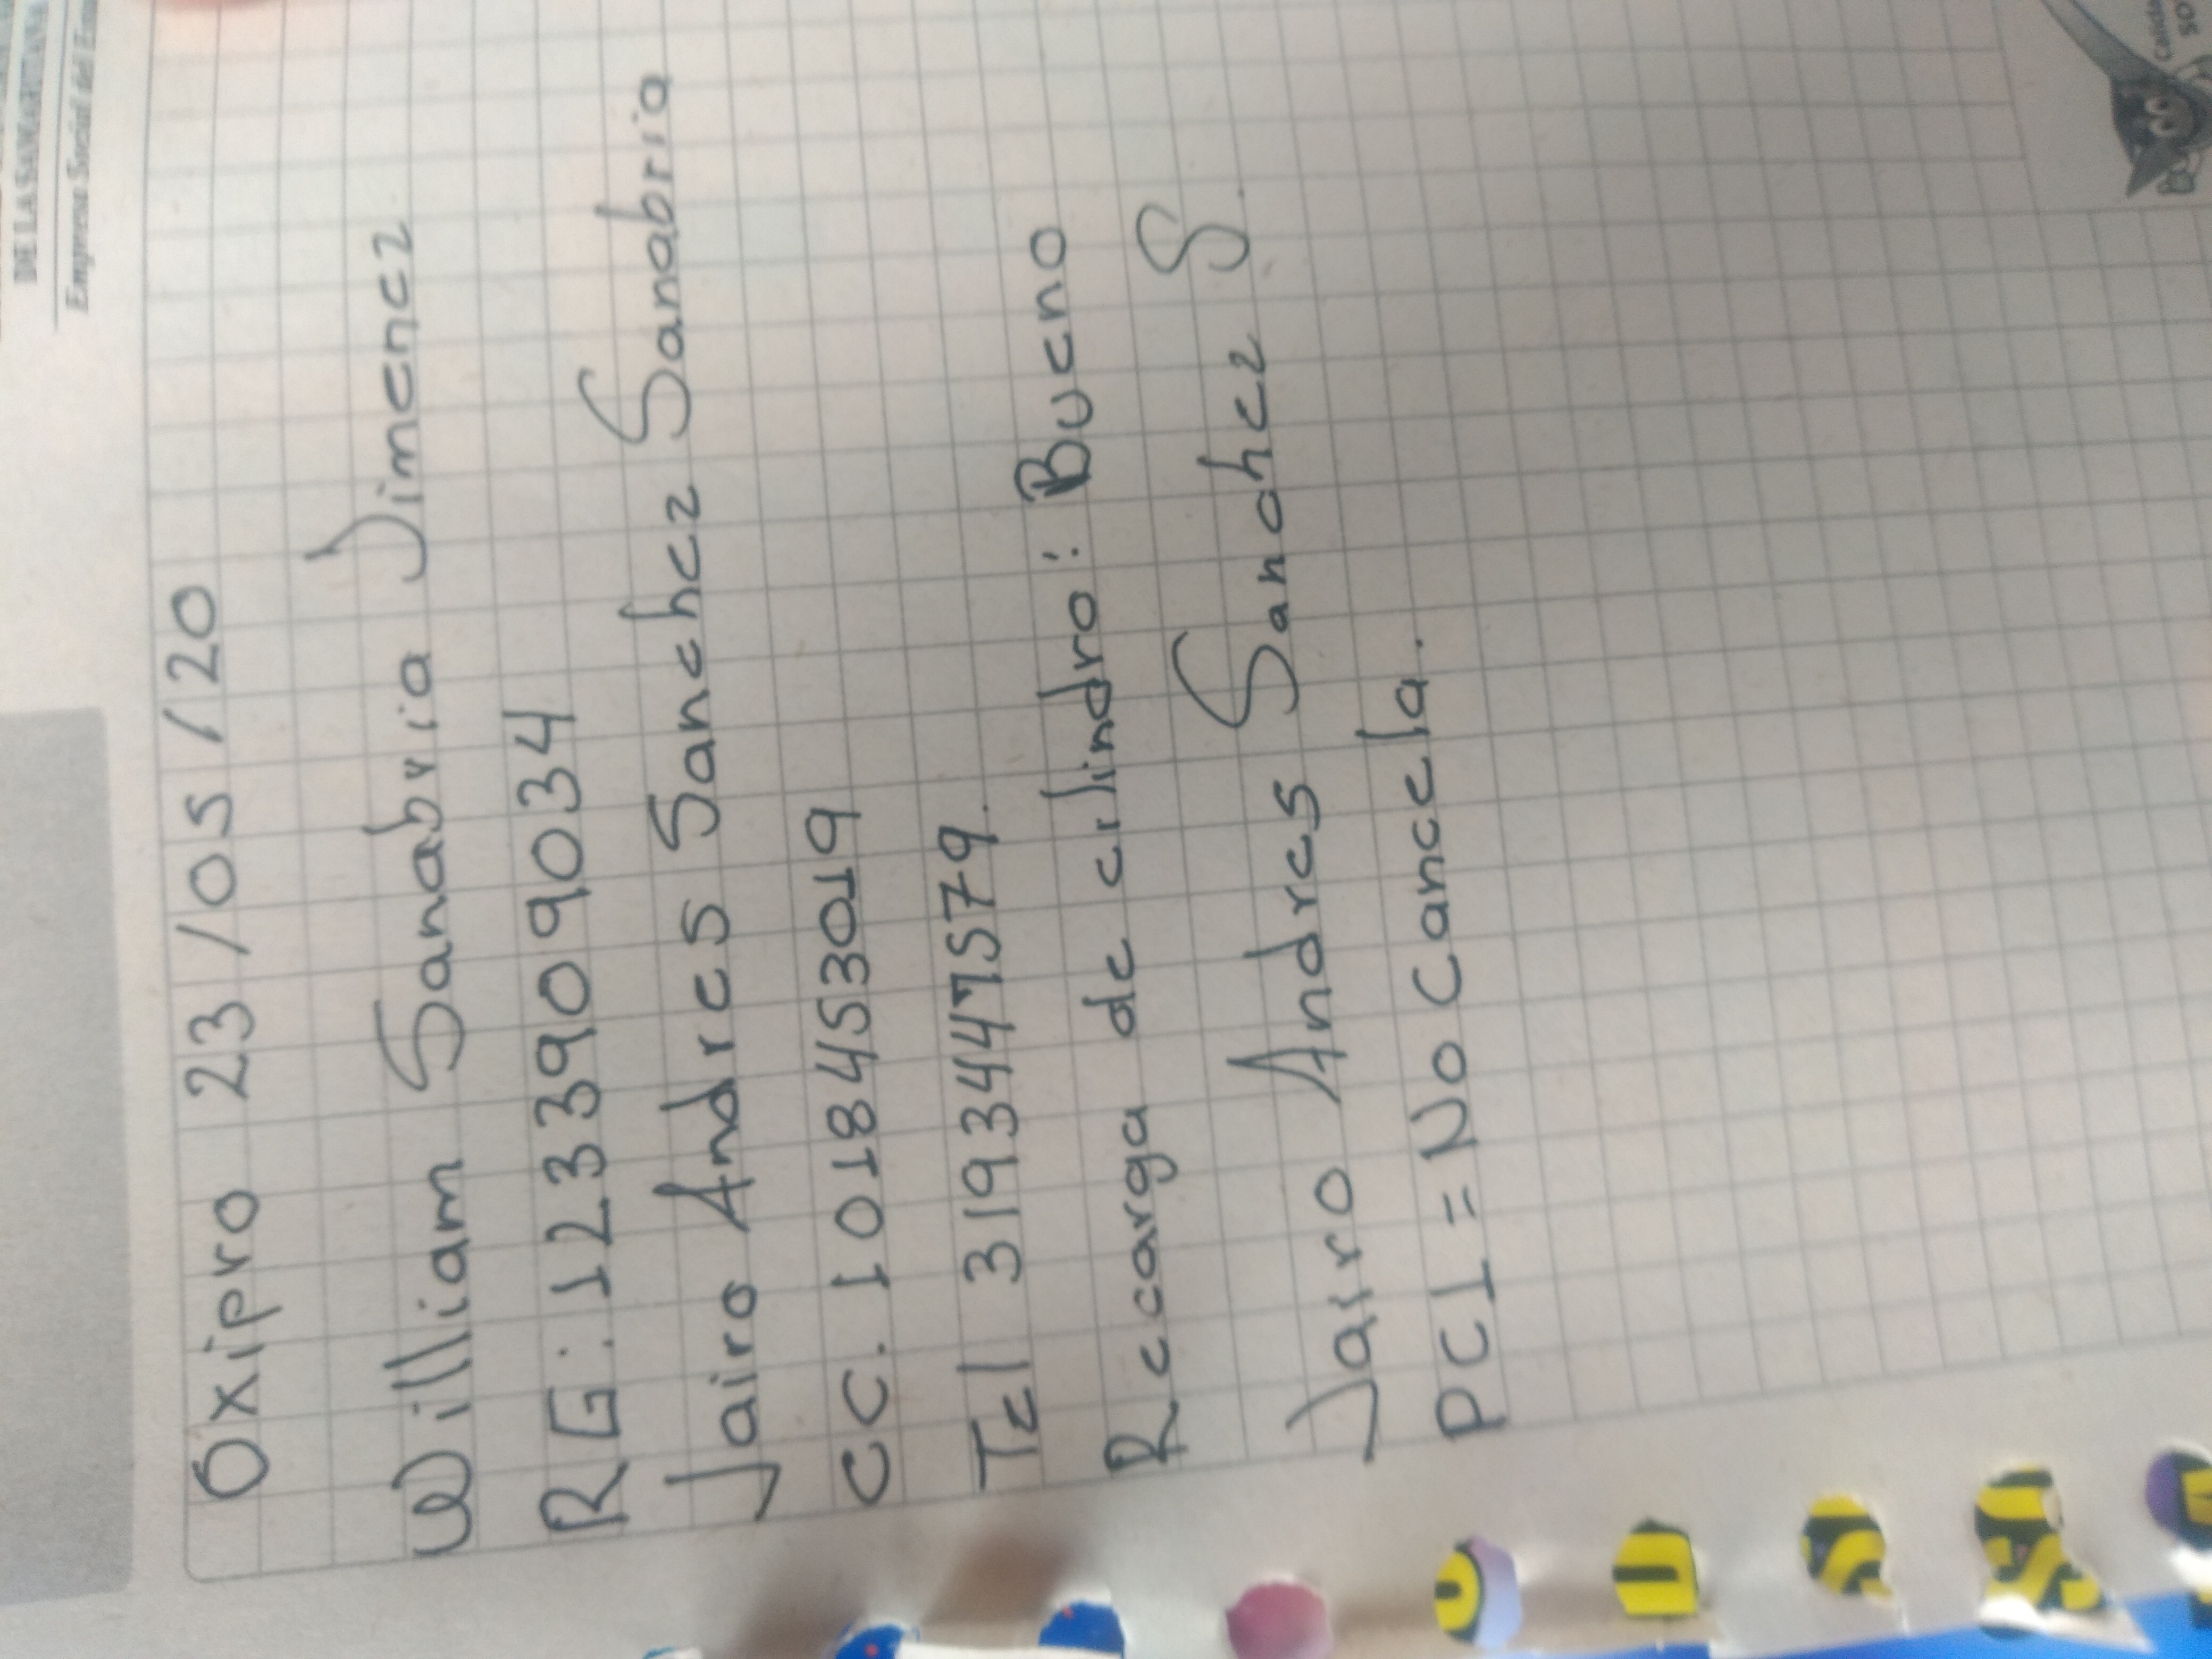 DE LA SAMARITANA
Empresa Social del Estado
Oxipro 23/05/20
William Sanabria Jimenez
RG: 1233909034
Jairo Andres Sanchez Sanabria
CC. 1018453019
Tel 3193447579.
Recarga de cilindro: Bueno
Jairo Andres Sanchez S.
PC1 = No Cancela.